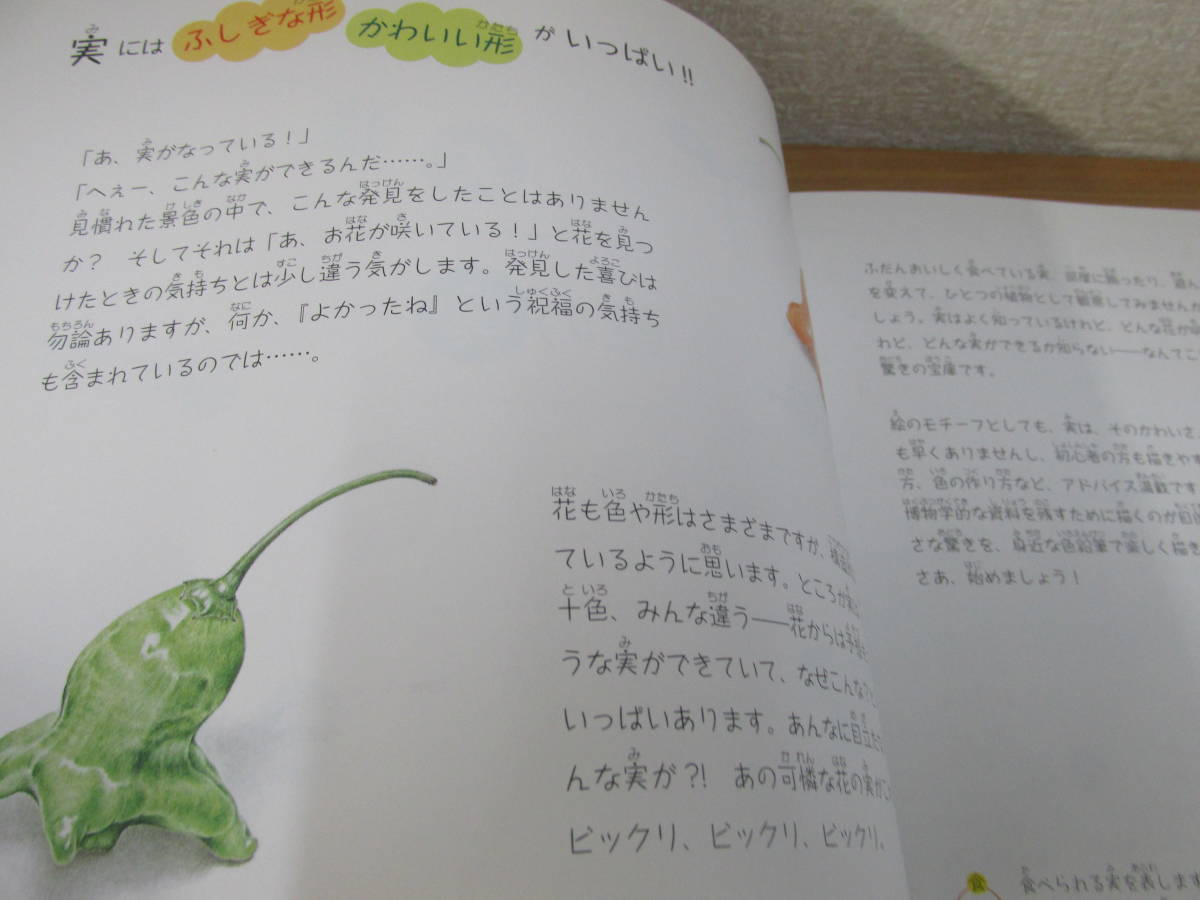 実には ふしぎな形 かわいい形 が いっぱい!!
「あ、実がなっている！」
「へぇー、こんな実ができるんだ……。」
見慣れた景色の中で、こんな発見をしたことはありません
か？　そしてそれは「あ、お花が咲いている！」と花を見つ
けたときの気持ちとは少し違う気がします。発見した喜びは
勿論ありますが、何か、『よかったね』という祝福の気持ち
も含まれているのでは……。
花も色や形はさまざまですが、
ているように思います。ところが
十色、みんな違う――花からは予想
うな実ができていて、なぜこんな
いっぱいあります。あんなに目立た
んな実が?!　あの可憐な花の実がこ
ビックリ、ビックリ、ビックリ。
ふだんおいしく食べている実、部屋に飾ったり、
を変えて、ひとつの植物として観察してみませんか
しょう。実はよく知っているけれど、どんな花が
れど、どんな実ができるか知らない――なんてこ
驚きの宝庫です。
絵のモチーフとしても、実は、そのかわいさ、
も早くありませんし、初心者の方も描きやす
方、色の作り方など、アドバイス満載です
博物学的な資料を残すために描くのが目的
さな驚きを、身近な色鉛筆で楽しく描き
さあ、始めましょう！
食 食べられる実を表します